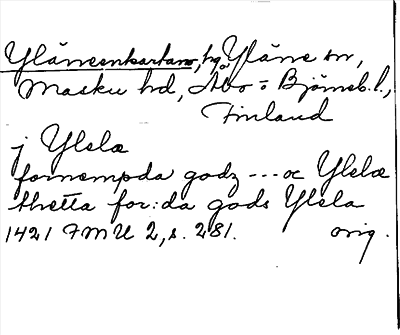 Yläneenkartano, hg, Yläne sn,
Masku hd, Åbo o Björneb. l.,
Finland
j Ylelæ
fornempda godz --- oc Ylelæ
thetta for:da gods Ylela
1421 FMU 2, s. 281. orig.